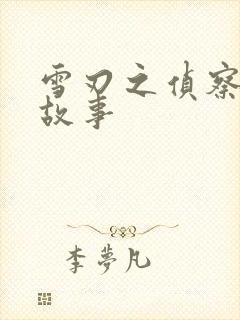 雪刃之偵察
故事
李夢凡